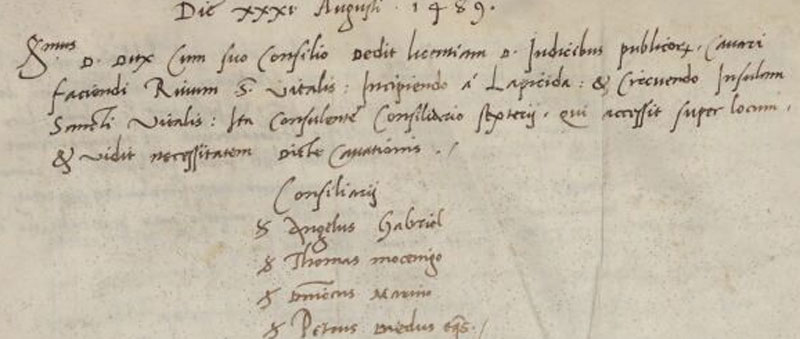 Die xxxi Augusti · 1489.
S.mus D. Dux Cum suo Consilio Dedit licentiam D. Iudicibus publicorꝝ, Cavari
faciendi Rivum S. Vitalis: Incipiendo a Lapicida: & Circuendo Insulam
Sancti Vitalis: Ita Consulente Consiliario sexterij, qui accessit super locum,
& vidit necessitatem Dicte Cavationis ./
Consiliarij
Angelus Gabriel
Thomas mocenigo
Dnicus Marino
Petrus Diedus eqs./